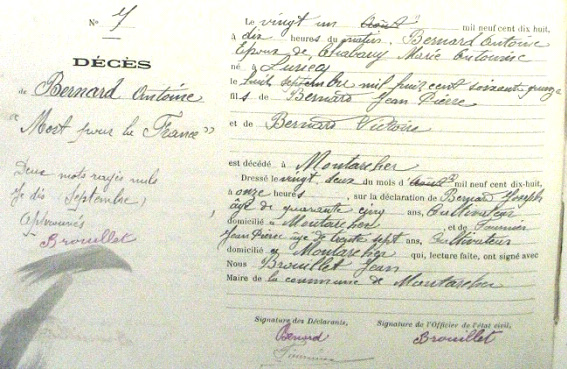 N° 7
DÉCÈS
de Bernard Antoine
"Mort pour la France"
Deux mots rayés nuls
Je dis (Septembre)
Approuvés
Brouillet
Le vingt un Août mil neuf cent dix huit,
à dix heures du matin, Bernard Antoine
Epoux de Chabany Marie Antoinie
né à Luriecq
le huit septembre mil huit cent soixante quinze
fils de Bernard Jean Pierre
et de Bernard Victoire
est décédé à Montarcher
Dressé le vingt deux du mois d'Août mil neuf cent dix-huit,
à onze heures, sur la déclaration de Bernard Joseph
âgé de quarante cinq ans, Cultivateur
domicilié à Montarcher, et de Fournier
Jean Pierre âgé de trente sept ans, Cultivateur
domicilié à Montarcher qui, lecture faite, ont signé avec
Nous Brouillet Jean
Maire de la commune de Montarcher
Signature des Déclarants, Signature de l'Officier de l'état civil,
Bernard Brouillet
Fournier